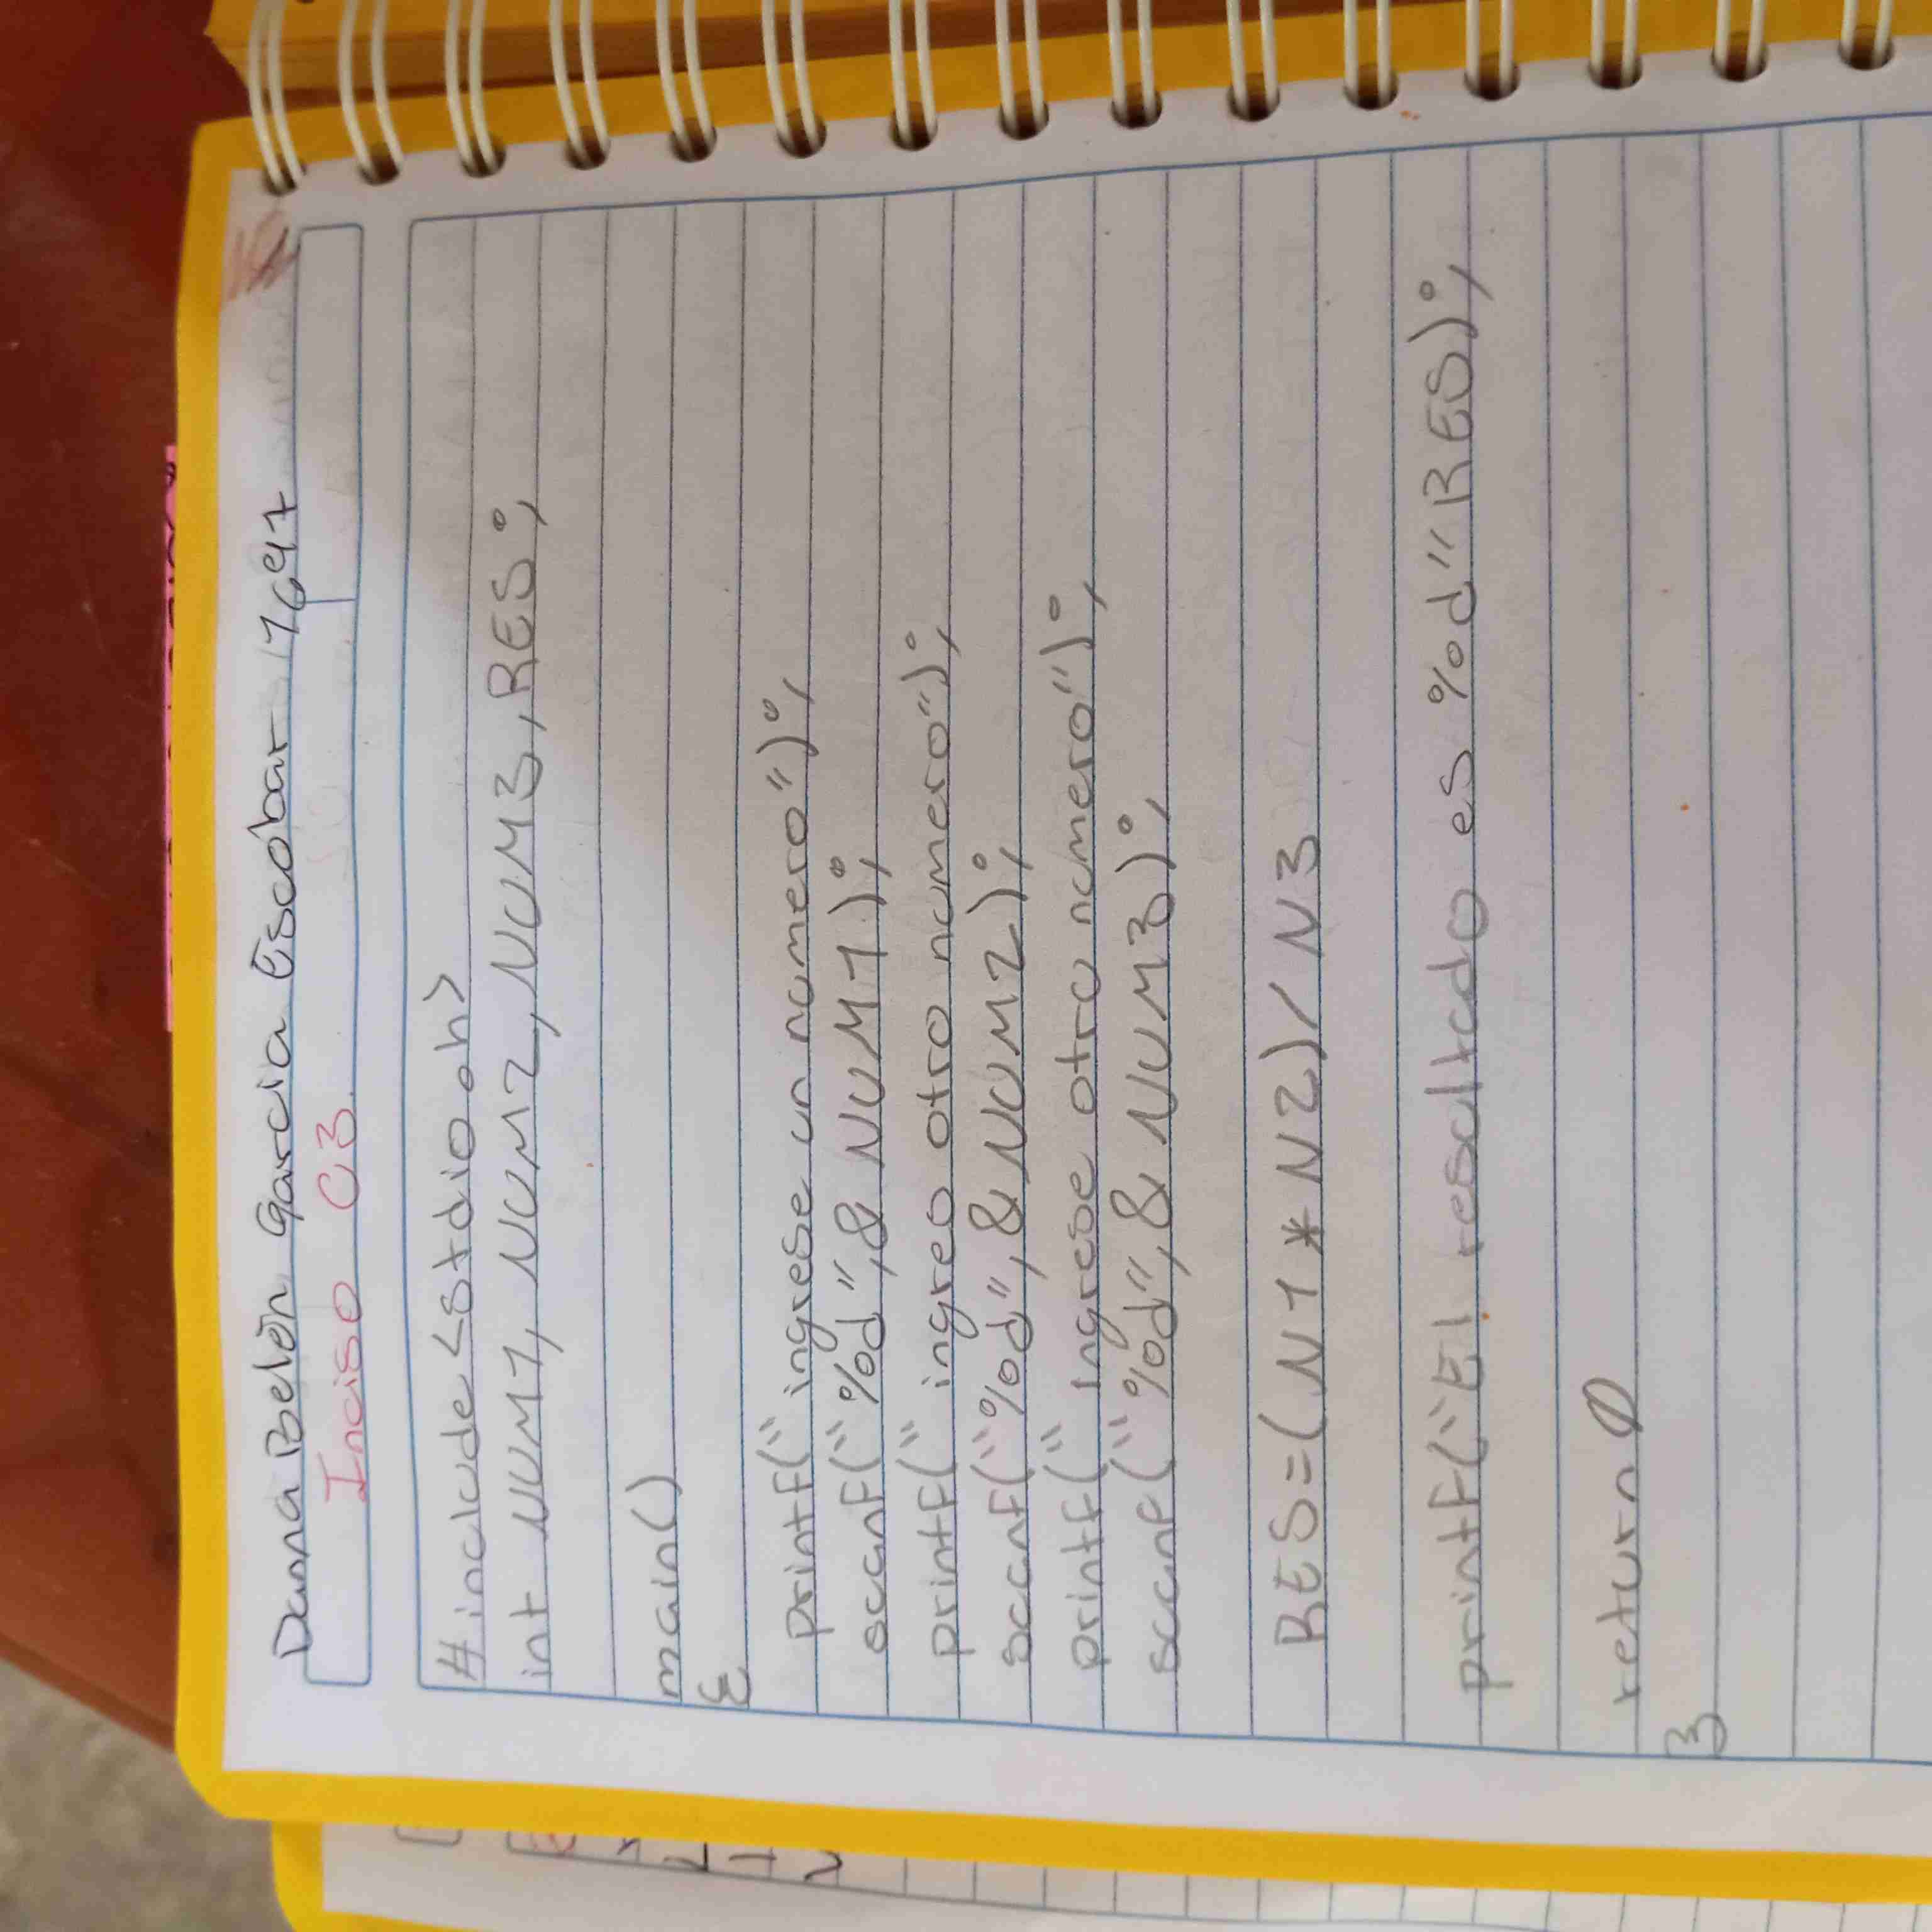 Danna Belén García Escobar 17697
Inciso C3
# include <stdio.h>
int NUM1, NUM2, NUM3, RES;
main()
{
printf("ingrese un numero");
scanf("%d",& NUM1);
printf("ingreo otro numero");
scanf("%d",& NUM2);
printf("Ingrese otro numero");
scanf("%d",& NUM3);
RES=(N1 * N2)/ N3
printf("El resultado es %d"RES);
return 0
}